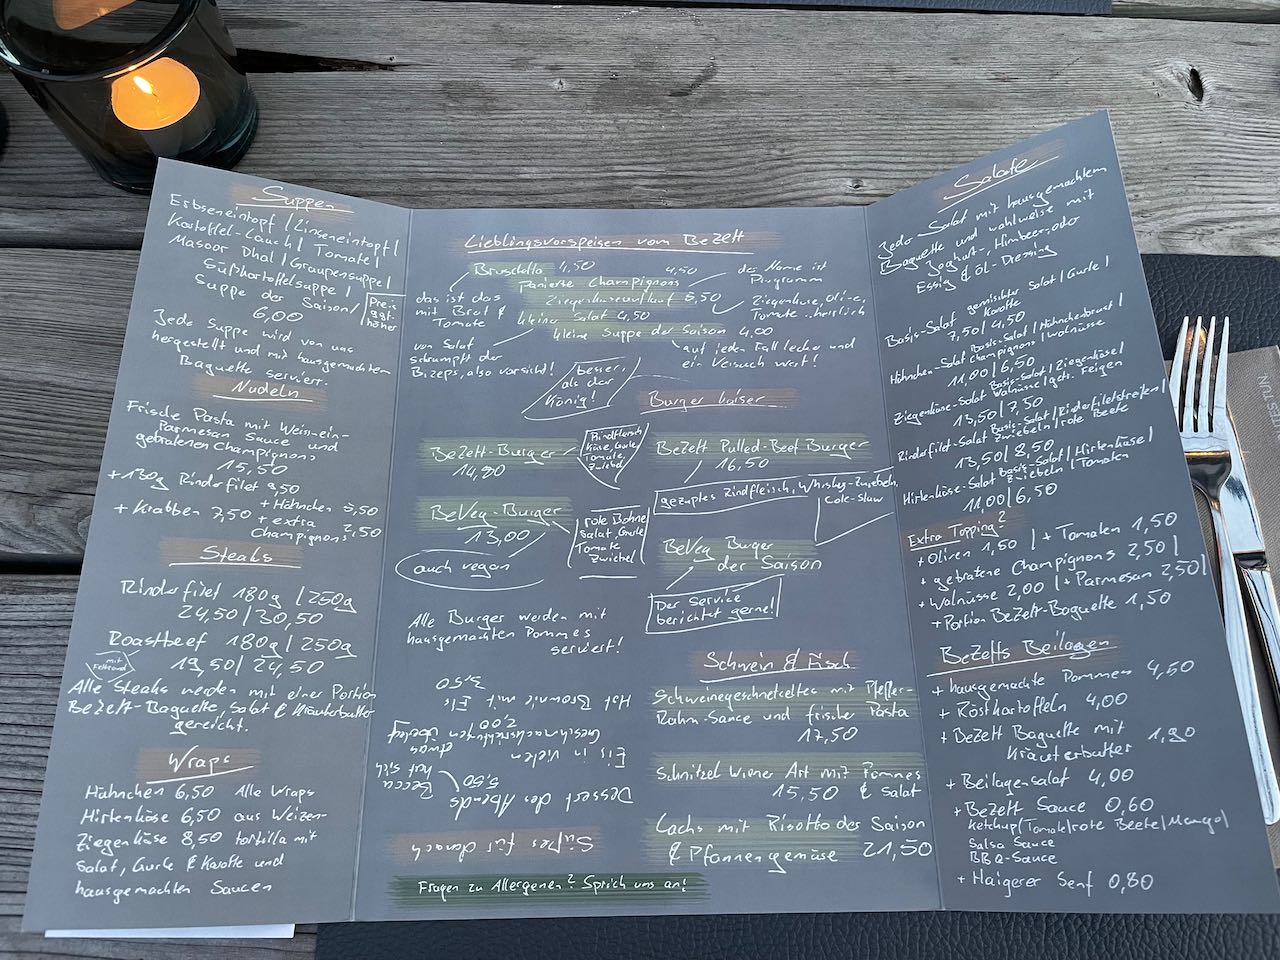 Suppen
Erbseneintopf / Linseneintopf /
Kartoffel-Lauch / Tomate /
Masoor Dhal / Graupensuppe /
Süßkartoffelsuppe /
Suppe der Saison /
6,00
Preis
ggf.
höher
Jede Suppe wird von uns
hergestellt und mit hausgemachtem
Baguette serviert.
Nudeln
Frische Pasta mit Weiss-ein-
Parmesan Sauce und
gebratenen Champignons
15,50
+ 130g Rinderfilet 9,50
+ Hähnchen 5,50
+ Krabben 7,50 + extra
Champignons 2,50
Steaks
Rinderfilet 180g / 250g
24,50 / 30,50
Roastbeef 180g / 250g
mit
Fettrand
19,50 / 24,50
Alle Steaks werden mit einer Portion
BeZett-Baguette, Salat & Kräuterbutter
gereicht.
Wraps
Hähnchen 6,50 Alle Wraps
Hirtenkäse 6,50 aus Weizen-
Ziegenkäse 8,50 tortilla mit
Salat, Gurke & Karotte und
hausgemachten Saucen
Lieblingsvorspeisen vom BeZett
Bruschetta 4,50
das ist das
mit Brot &
Tomate
Panierte Champignons 4,50
der Name ist
Programm
Ziegenkäseauflauf 6,50
Ziegenkäse, Olive,
Tomate..herrlich
kleiner Salat 4,50
von Salat
schrumpft der
Bizeps, also vorsicht!
kleine Suppe der Saison 4,00
auf jeden Fall lecker und
ein Versuch wert!
besser,
als der
König!
Burger Kaiser
BeZett-Burger
14,80
Rindfleisch
Käse, Gurke,
Tomate,
Zwiebel
BeVeg-Burger
13,00
rote Bohne
Salat, Gurke
Tomate
Zwiebel
auch vegan
Alle Burger werden mit
hausgemachten Pommes
serviert!
BeZett Pulled-Beef Burger
16,50
gezupftes Rindfleisch, Whisky-Zwiebeln,
Cole-slaw
BeVeg Burger
der Saison
Der Service
berichtet gerne!
Schwein & Fisch
Schweinegeschnetzeltes mit Pfeffer-
Rahm-Sauce und frische Pasta
17,50
Schnitzel Wiener Art mit Pommes
15,50 & Salat
Lachs mit Risotto der Saison
& Pfannengemüse 21,50
Süßes für danach
Dessert des Abends
5,50
Becca
hat sich
etwas
überlegt
Eis in vielen
Geschmacksrichtungen
2,00
Hot Brownie mit Eis
3,50
Fragen zu Allergenen? Sprich uns an!
Salate
Jeder Salat mit hausgemachtem
Baguette und wahlweise mit
Joghurt-, Himbeer-, oder
Essig & Öl-Dressing
Basis-Salat gemischter Salat / Gurke /
Karotte
7,50 / 4,50
Hähnchen-Salat Basis-Salat / Hähnchenbrust /
Champignons / Walnüsse
11,00 / 6,50
Ziegenkäse-Salat Basis-Salat / Ziegenkäse /
Walnüsse / getr. Feigen
13,50 / 7,50
Rinderfilet-Salat Basis-Salat / Rinderfiletstreifen /
Zwiebeln / rote Beete
13,50 / 8,50
Hirtenkäse-Salat Basis-Salat / Hirtenkäse /
Zwiebeln / Tomaten
11,00 / 6,50
Extra Topping?
+ Oliven 1,50 / + Tomaten 1,50
+ gebratene Champignons 2,50 /
+ Walnüsse 2,00 / + Parmesan 2,50 /
+ Portion BeZett-Baguette 1,50
BeZetts Beilagen
+ hausgemachte Pommes 4,50
+ Röstkartoffeln 4,00
+ BeZett Baguette mit
Kräuterbutter 1,90
+ Beilagensalat 4,00
+ BeZett Sauce 0,60
Ketchup / Tomate / rote Beete / Mango /
Salsa Sauce
BBQ-Sauce
+ Haigerer Senf 0,80